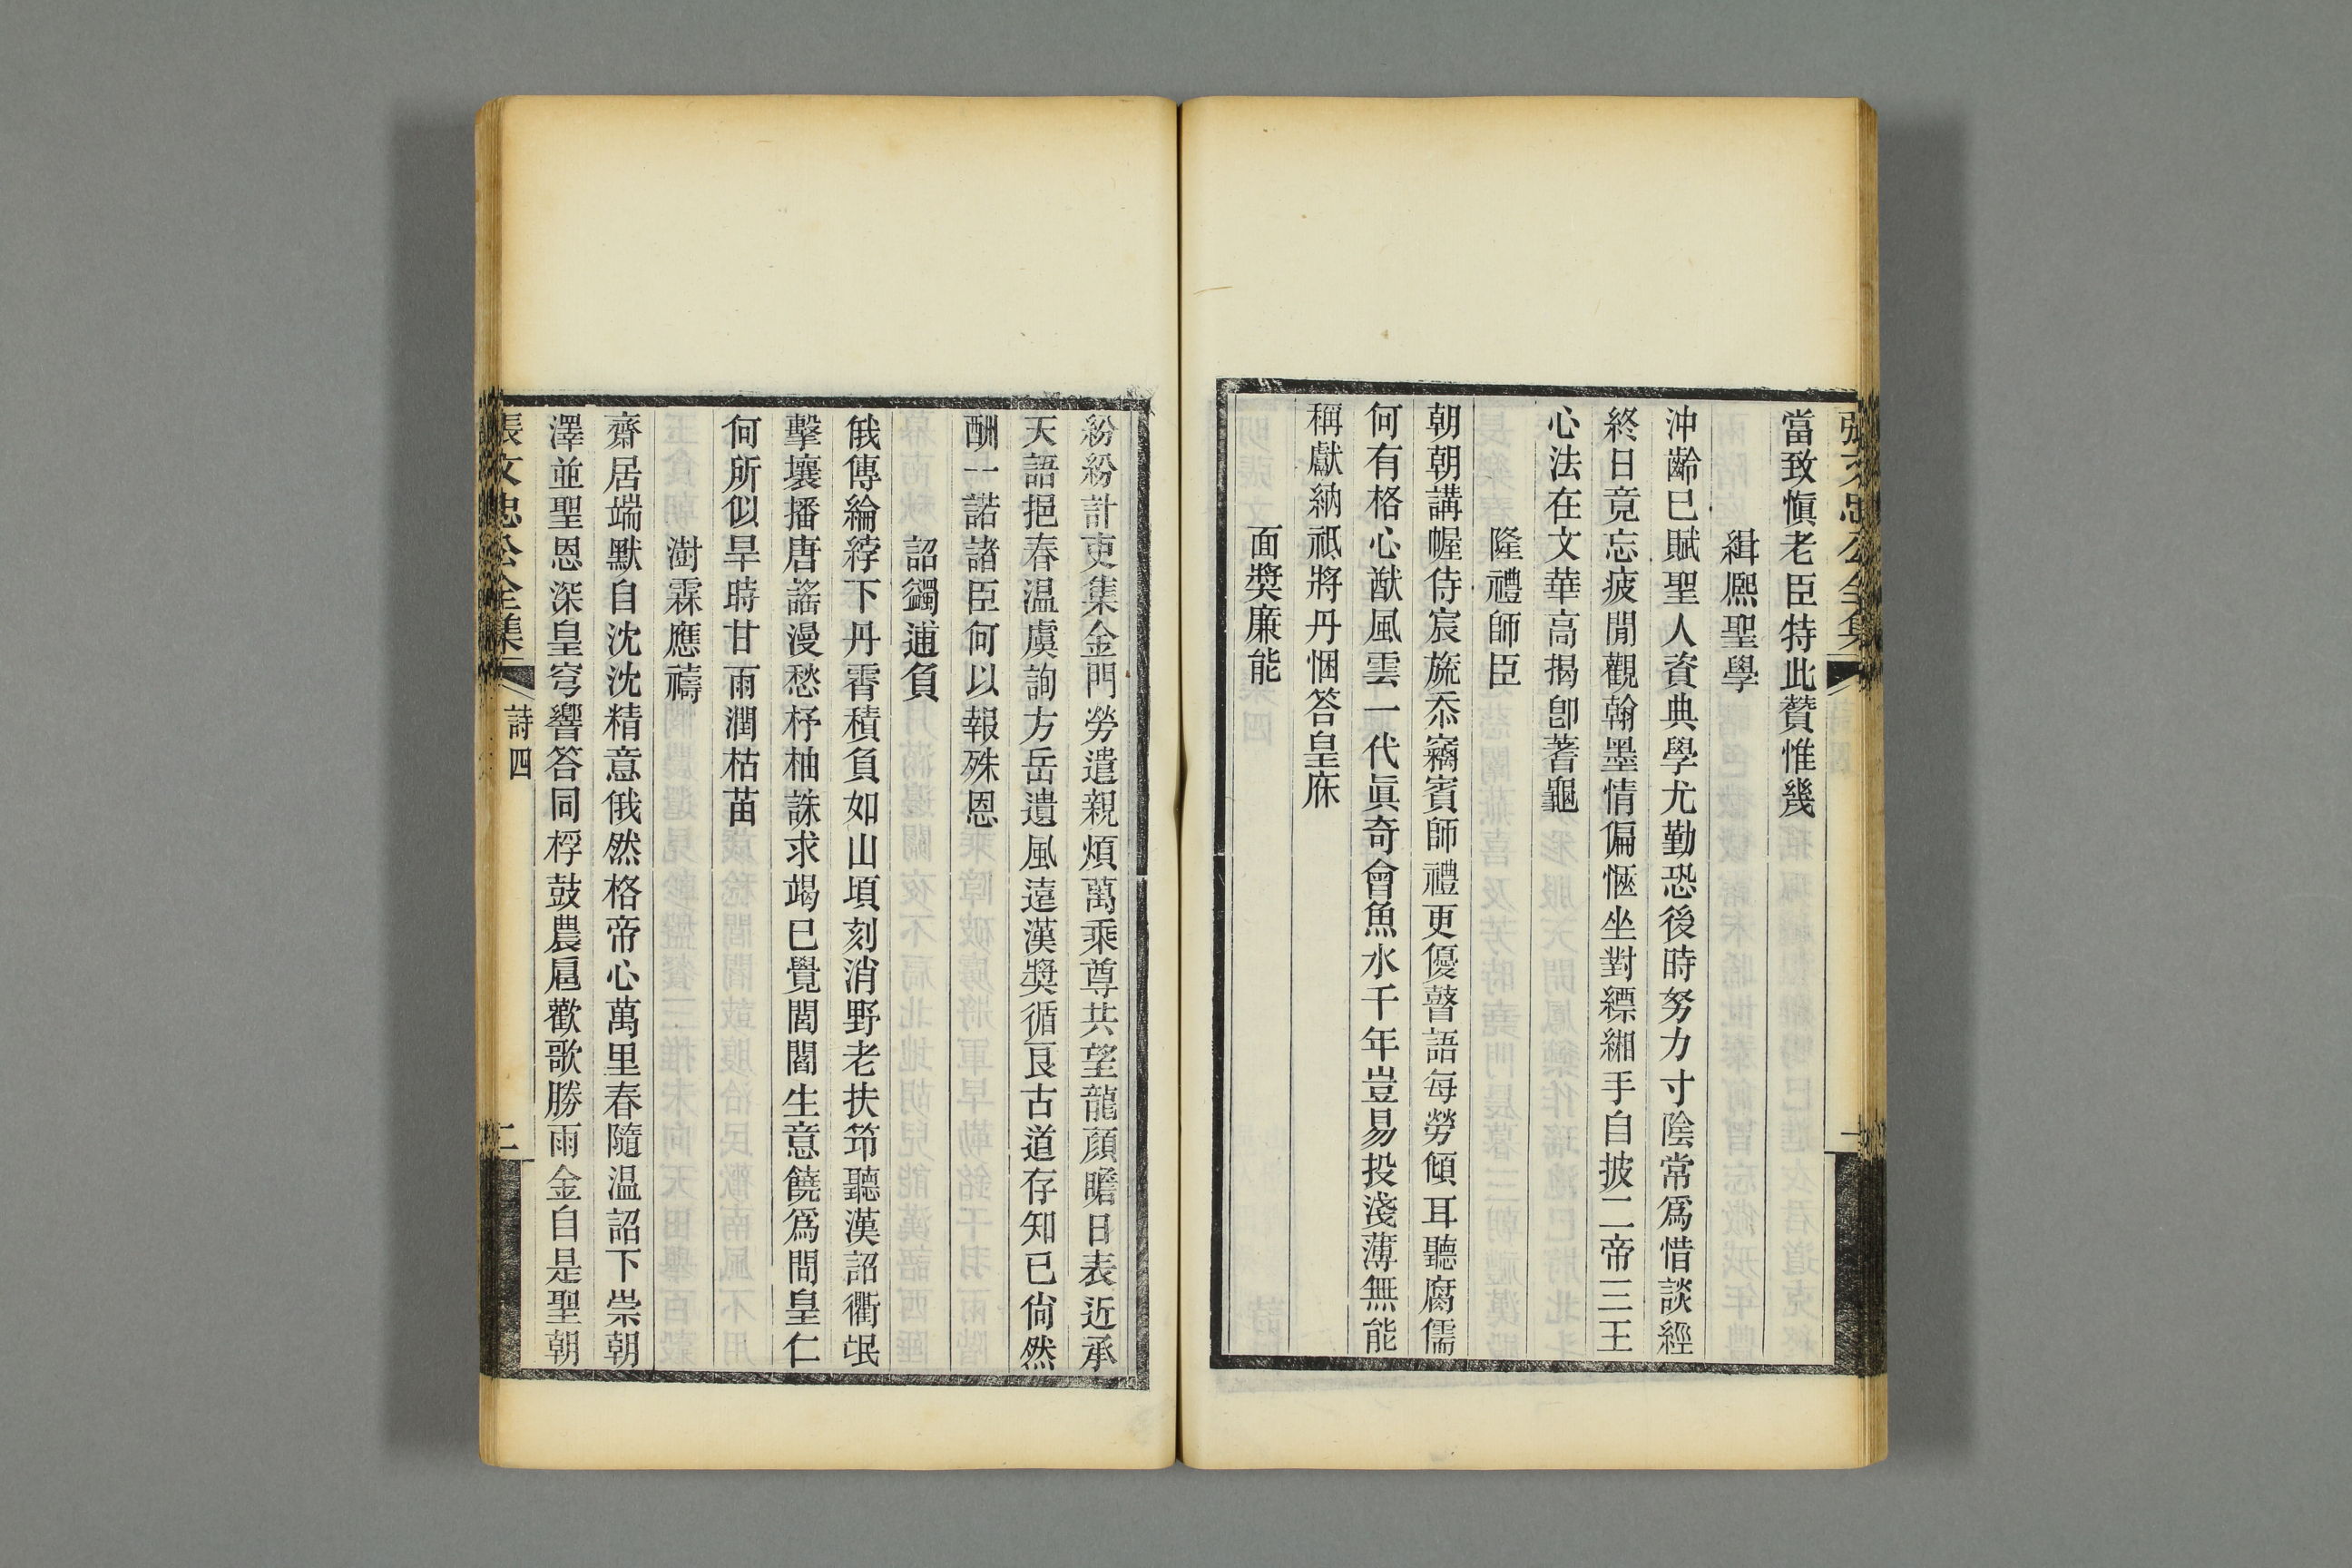 張文忠公全集
當致愼老臣特此贊惟幾
緝熈聖學
沖齡巳賦聖人資典學尤勤恐後時努力寸陰常爲惜談經
終日竟忘疲閒觀翰墨情偏愜坐對縹緗手自披二帝三王
心法在文華高揭卽蓍龜
隆禮師臣
朝朝講幄侍宸旒忝竊賓師禮更優瞽語每勞傾耳聽腐儒
何有格心猷風雲一代眞奇會魚水千年豈易投淺薄無能
稱獻納祇將丹悃答皇庥
面獎廉能
紛紛計吏集金門勞遣親煩萬乘尊共望龍顔瞻日表近承
天語挹春温虞詢方岳遺風遠漢獎循良古道存知巳尙然
酬一諾諸臣何以報殊恩
詔蠲逋負
俄傳綸綍下丹霄積負如山頃刻消野老扶筇聽漢詔衢氓
擊壤播唐謠漫愁杼柚誅求竭巳覺閭閻生意饒爲問皇仁
何所似旱時甘雨潤枯苗
澍霖應禱
齋居端默自沈沈精意俄然格帝心萬里春隨温詔下崇朝
澤並聖恩深皇穹響答同桴鼓農扈歡歌勝雨金自是聖朝
張文忠公全集
詩四
二